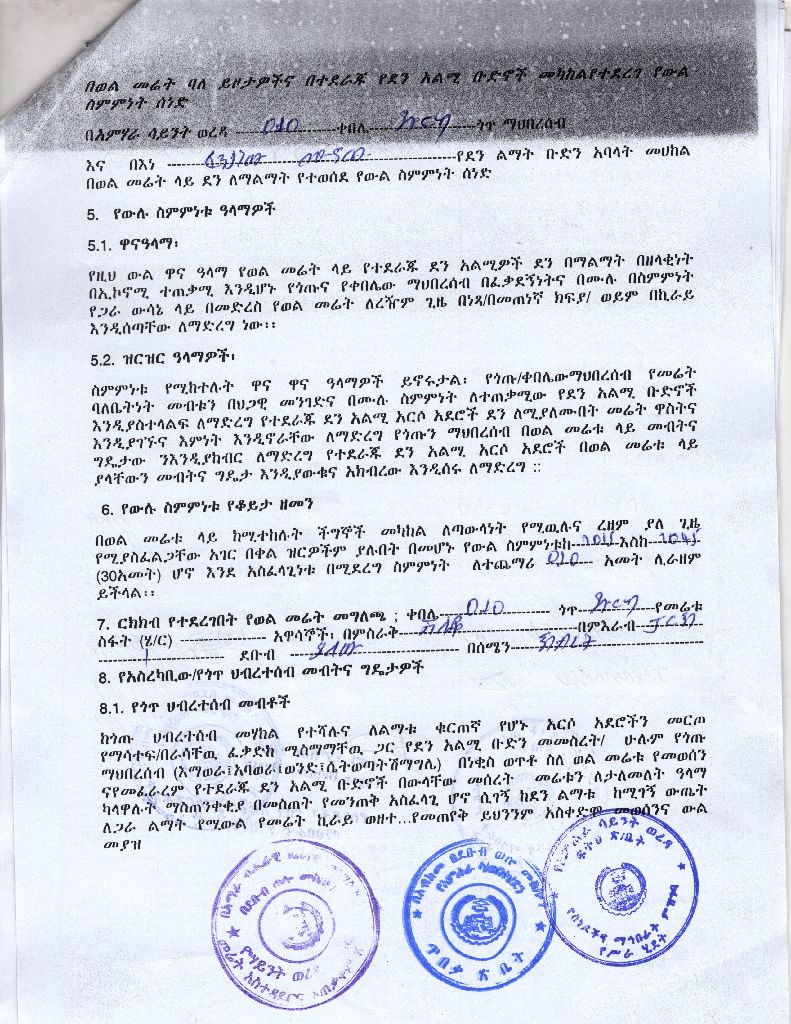 በወል መሬት ባለ ይዞታዎችና በተደራጁ የደን አልሚ ቡድኖች መካከልየተደረገ የውል
ስምምነት ሰነድ
በአምሃራ ሳይንት ወረዳ ----------ቀበሌ----------ጎጥ ማህበረሰብ
እና በእነ ----------የደን ልማት ቡድን አባላት መሀከል
በወል መሬት ላይ ደን ለማልማት የተወሰደ የውል ስምምነት ሰነድ
5. የውሉ ስምምነቱ ዓላማዎች
5.1. ዋናዓላማ፡
የዚህ ውል ዋና ዓላማ የወል መሬት ላይ የተደራጁ ደን አልሚዎች ደን በማልማት በዘላቂነት
በኢኮኖሚ ተጠቃሚ እንዲሆኑ የጎጡና የቀበሌው ማህበረሰብ በፈቃደኝነትና በሙሉ በስምምነት
የጋራ ውሳኔ ላይ በመድረስ የወል መሬት ለረዥም ጊዜ በነጻ/በመጠነኛ ክፍያ/ ወይም በኪራይ
እንዲሰጣቸው ለማድረግ ነው፡፡
5.2. ዝርዝር ዓላማዎች፡
ስምምነቱ የሚከተሉት ዋና ዋና ዓላማዎች ይኖሩታል፡ የጎጡ/ቀበሌውማህበረሰብ የመሬት
ባለቤትነት መብቱን በህጋዊ መንገድና በሙሉ ስምምነት ለተጠቃሚው የደን አልሚ ቡድኖች
እንዲያስተላልፍ ለማድረግ የተደራጁ ደን አልሚ አርሶ አደሮች ደን ለሚያለሙበት መሬት ዋስትና
እንዲያገኙና እምነት እንዲኖራቸው ለማድረግ የጎጡን ማህበረሰብ በወል መሬቱ ላይ መብትና
ግዴታው ንእንዲያከብር ለማድረግ የተደራጁ ደን አልሚ አርሶ አደሮች በወል መሬቱ ላይ
ያላቸውን መብትና ግዴታ እንዲያውቁና አክብረው እንዲሰሩ ለማድረግ ::
6. የውሉ ስምምነቱ የቆይታ ዘመን
በወል መሬቱ ላይ ከሚተከሉት ችግኞች መካከል ለጣውላነት የሚዉሉና ረዘም ያለ ጊዜ
የሚያስፈልጋቸው አገር በቀል ዝርዎችም ያሉበት በመሆኑ የውል ስምምነቱከ----------እስከ----------
(30አመት) ሆኖ እንደ አስፈላጊነቱ በሚደረግ ስምምነት ለተጨማሪ ---------- አመት ሊራዘም
ይችላል፡፡
7. ርክክብ የተደረገበት የወል መሬት መግለጫ ; ቀበሌ---------- ጎጥ ----------የመሬቱ
ስፋት (ሄ/ር) ---------- አዋሳኞች፡ በምስራቅ----------በምእራብ----------
---------- ደቡብ ---------- በሰሜን----------
8. የአስረካቢው/የጎጥ ህብረተሰብ መብትና ግዴታዎች
8.1. የጎጥ ህብረተሰብ መብቶች
ከጎጡ ህብረተሰብ መሃከል የተሻሉና ለልማቱ ቁርጠኛ የሆኑ አርሶ አደሮችን መርጦ
የማሳተፍ/በራሳቸዉ ፈቃድከ ሚስማማቸዉ ጋር የደን አልሚ ቡድን መመስረት/ ሁሉም የጎጡ
ማህበረሰብ (እማወራ፤አባወራ፤ወንድ፤ሴትወጣትሽማግሌ) በነቂስ ወጥቶ ስለ ወል መሬቱ የመወሰን
ናየመፈራረም የተደራጁ ደን አልሚ ቡድኖች በውላቸው መሰረት መሬቱን ለታለመለት ዓላማ
ካላዋሉት ማስጠንቀቂያ በመስጠት የመንጠቅ አስፈላጊ ሆኖ ሲገኝ ከደን ልማቱ ከሚገኝ ውጤት
ለጋራ ልማት የሚውል የመሬት ኪራይ ወዘተ...የመጠየቅ ይህንንም አስቀድሞ መወሰንና ውል
መያዝ